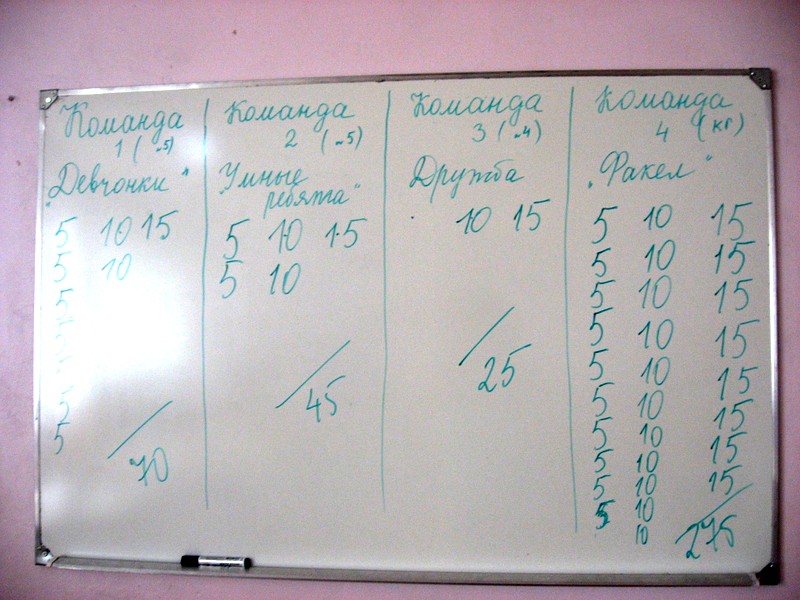 Команда
1 (м5)
"Девчонки"
5 10 15
5 10
5
5
5
5
5
70
Команда
2 (м5)
Умные
ребята"
5 10 15
5 10
45
Команда
3 (м4)
Дружба
10 15
25
Команда
4 (кг)
"Факел"
5 10 15
5 10 15
5 10 15
5 10 15
5 10 15
5 10 15
5 10 15
5 10 15
5 10
10
10
275